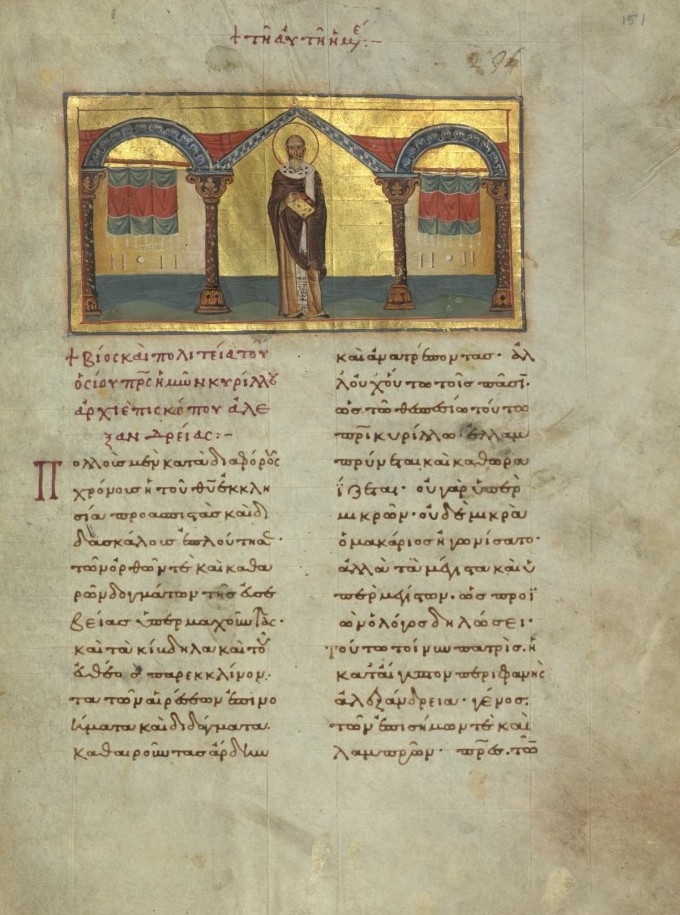 + τῇ αὐτῇ ἡμέ:-
151
+ βίος καὶ πολιτεία τοῦ
ὁσίου πρς ἡμῶν κυρίλλου
ἀρχιεπισκόπου ἀλε
ξανδρείας:-
Πολλοῖς μὲν κατὰ διαφόρους
χρόνοις ἡ τοῦ θυ ἐκκλη
σία προασπιστὰς καὶ δι
δασκάλοις ἐπλούτησε·
τῶν ὀρθῶν τὲ καὶ καθα
ρῶν δογμάτων τῆς εὐσε
βείας ὑπερμαχοῦντας·
καὶ τὰ κίβδηλα καὶ τοῦ
παρεκκλίνον
τα τῶν αἱρέσεων ἐπινο
ήματα καὶ διδάγματα·
καθαιροῦντας ἄρδην
καὶ ἀνατρέποντας· ἀλ
λ' οὐχ οὕτω τοῖς πᾶσι·
ὡς τῶ θεσπεσίω τούτω
πρὶ κυρίλλω ἐλλαμ
πρύνεται καὶ καθωρα
ΐζεται· οὐ γὰρ ὑπὲρ
μικρῶν· οὐδὲ μικρὰ
ὁ μακάριος ἠγωνίσατο·
ἀλλὰ τὰ μέγιστα καὶ ὑ
πὲρ μεγίστων· ὡς προϊ
ὼν ὁ λόγος δηλώσει·
τούτω τοίνυν πατρὶς· ἡ
κατ' αἴγυπτον περιφανὴς
ἀλεξάνδρεια· γένος·
τῶν ἐπισήμων τὲ καὶ
λαμπρῶν· πρες· τῶν